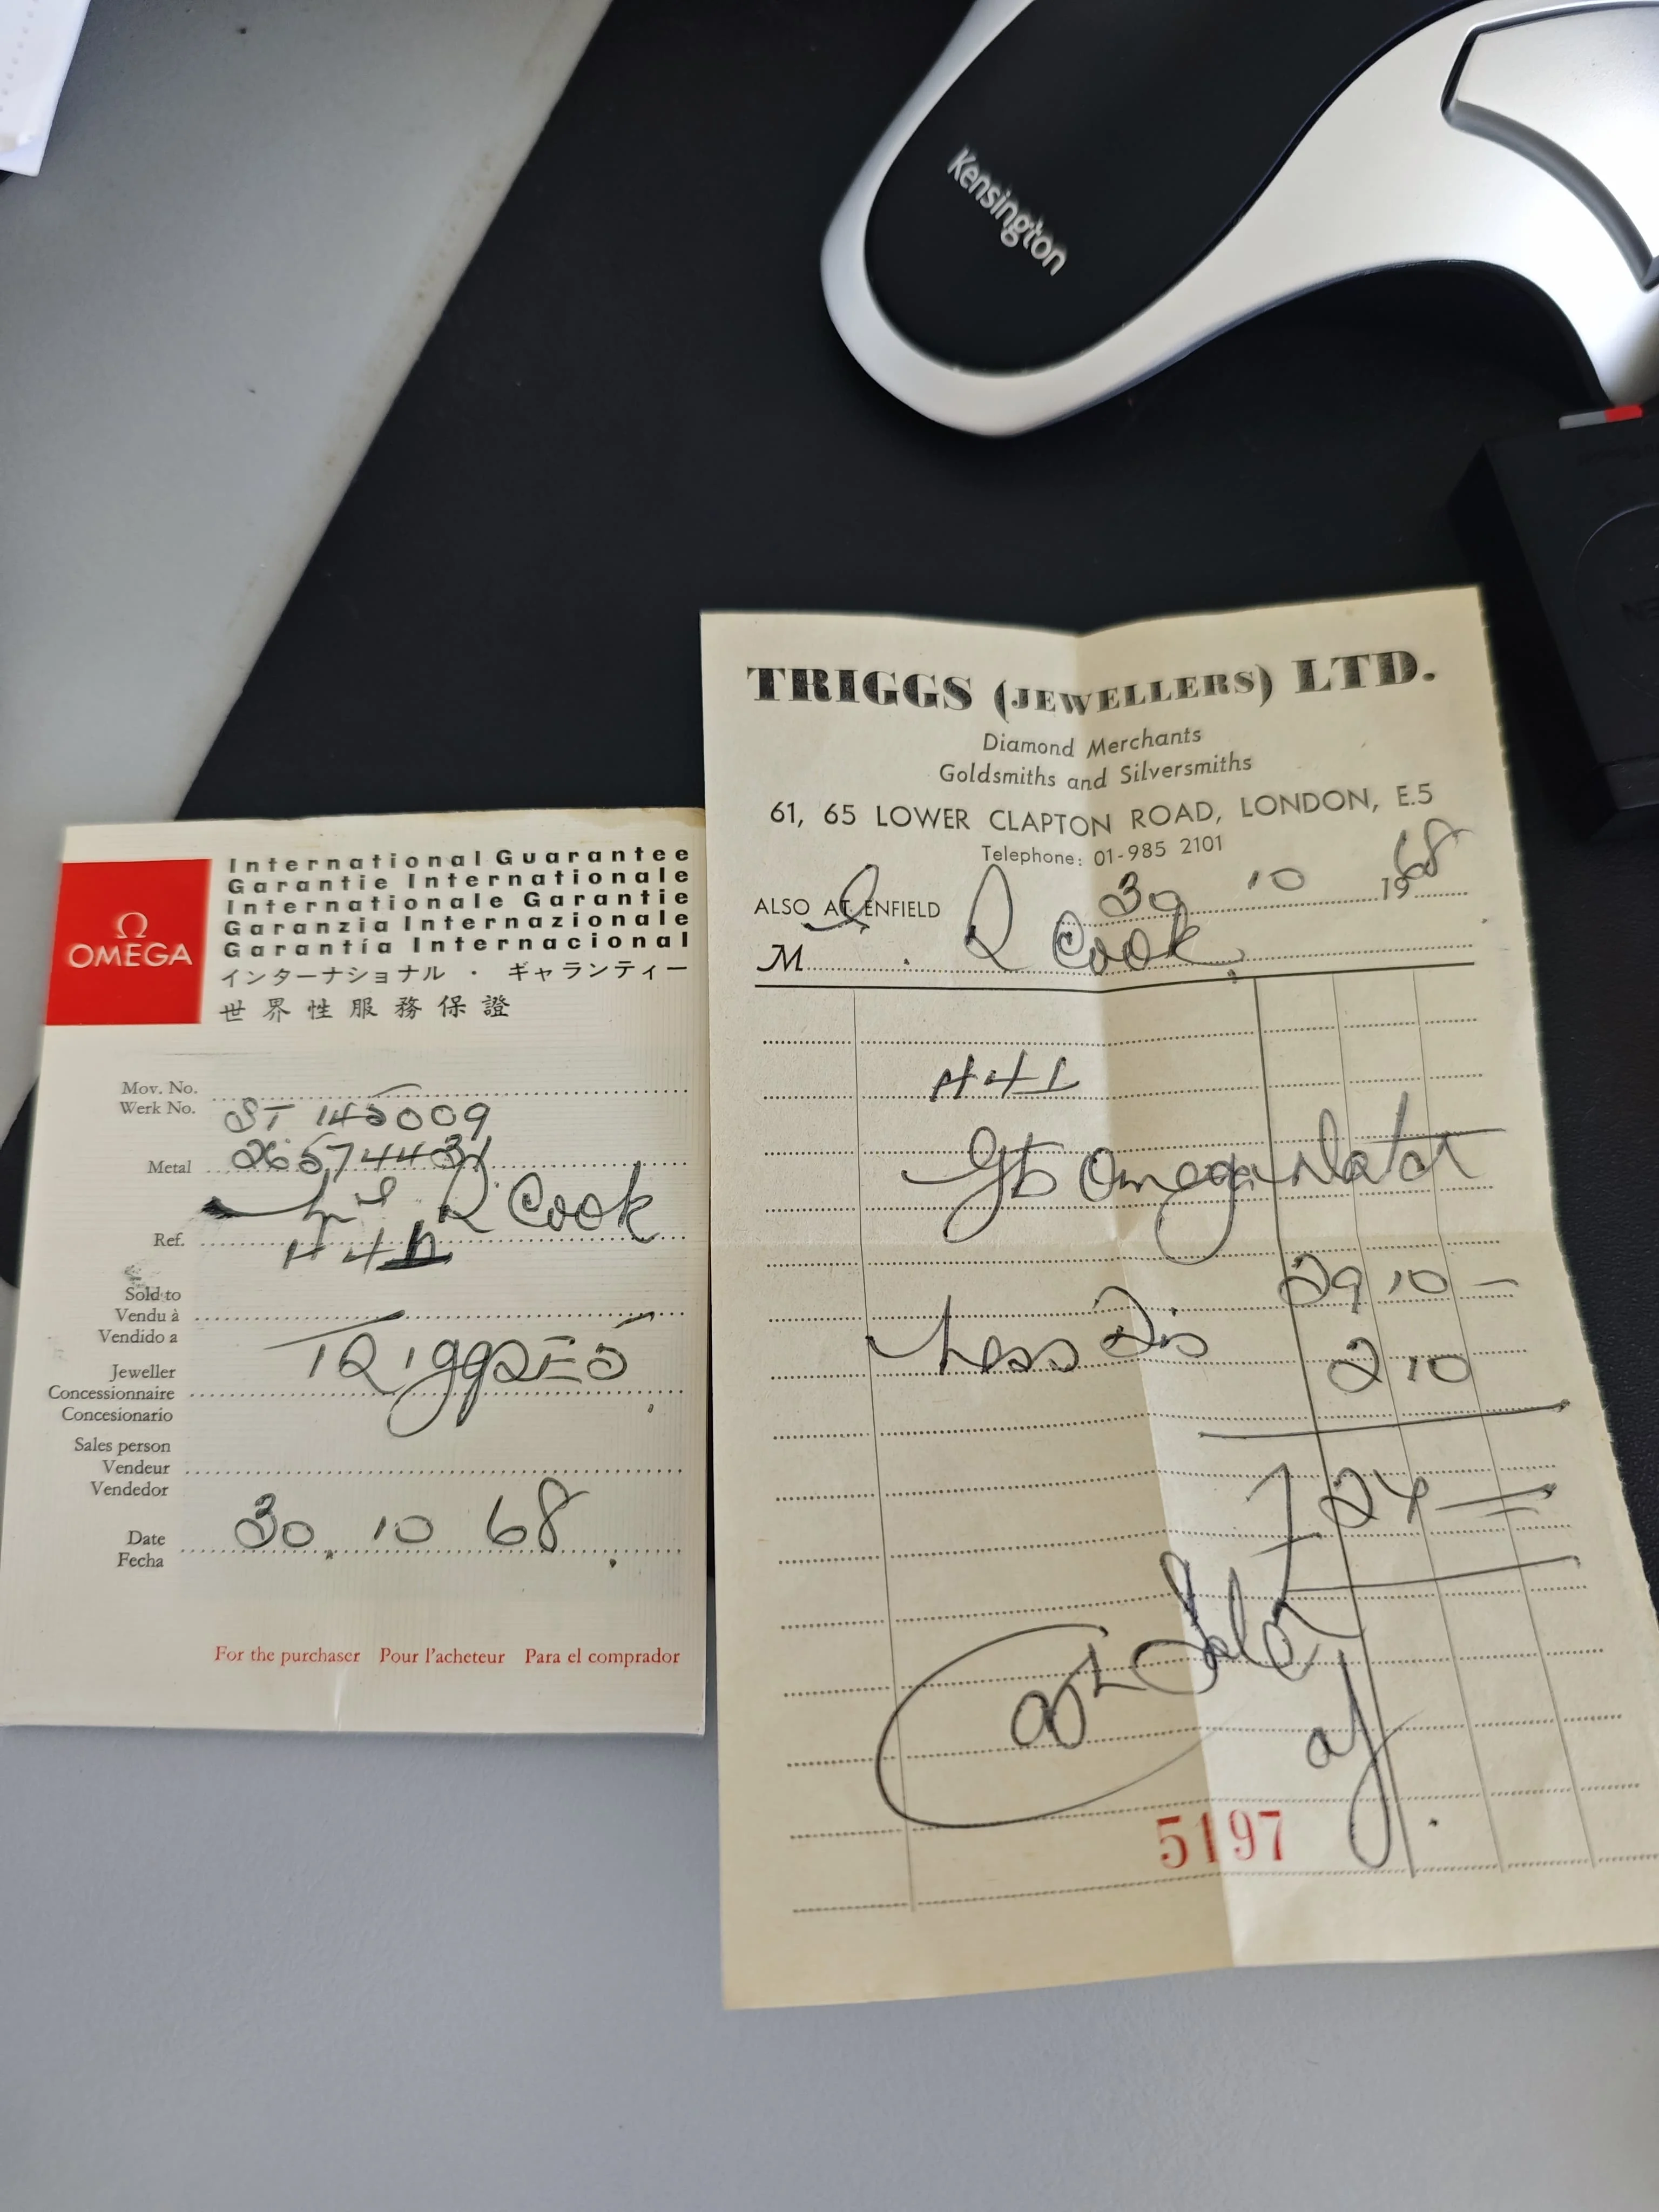 Kensington
Ω
OMEGA
International Guarantee
Garantie Internationale
Internationale Garantie
Garanzia Internazionale
Garantía Internacional
インターナショナル・ギャランティー
世界性服務保證
Mov. No.
Werk No. ST 145009
Metal 26574431
R Cook
Ref. H4L
Sold to
Vendu à
Vendido a
Jeweller TRIggs E5
Concessionnaire
Concesionario
Sales person
Vendeur
Vendedor
Date 30. 10 68
Fecha
For the purchaser Pour l'acheteur Para el comprador
TRIGGS (JEWELLERS) LTD.
Diamond Merchants
Goldsmiths and Silversmiths
61, 65 LOWER CLAPTON ROAD, LONDON, E.5
Telephone: 01-985 2101
ALSO AT ENFIELD 30 10 1968
M R Cook
H4L
Gts Omega Watch
29 10 -
Less Dis 2 10
£27
Cash Sale
5197